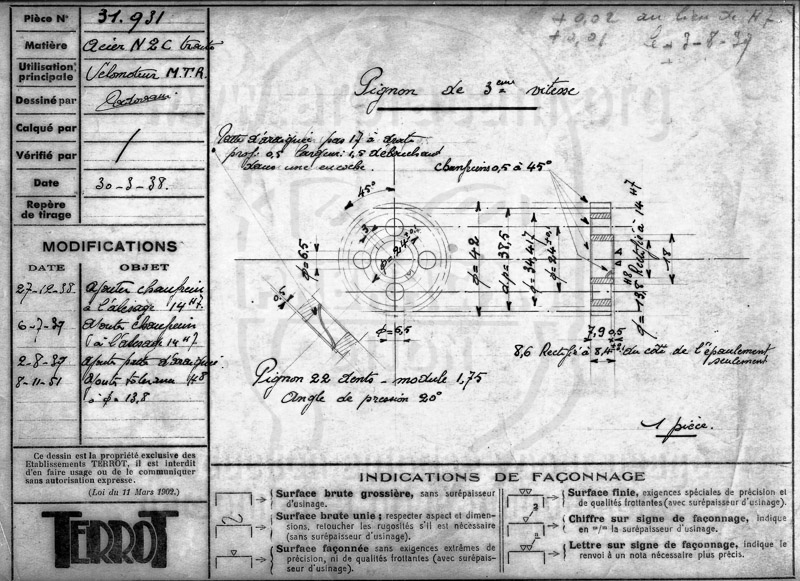 Pièce N° 31.931
Matière Acier N2C traité
Utilisation principale Vélomoteur M.T.R.
Dessiné par
Calqué par
Vérifié par
Date 30-3-38.
Repère de tirage
MODIFICATIONS
DATE OBJET
27-12-38 Ajouter chanfrein
à l'alésage 14 H7.
6-7-39 Ajouté chanfrein
à l'alésage 14 H7
2-8-39 Ajouté patte d'araignée
8-11-51 Ajouté tolérance H8
à φ = 13,8
Ce dessin est la propriété exclusive des
Etablissements TERROT, il est interdit
d'en faire usage ou de le communiquer
sans autorisation expresse.
(Loi du 11 Mars 1902.)
TERROT
+ 0,02 au lieu de H7
+ 0,01 Le - 3-8-39
Pignon de 3ème vitesse
Patte d'araignée pas 17 à droite
prof: 0,5 largeur: 1,5 débouchant
dans une encoche.
chanfreins 0,5 à 45°
45°
3
φ = 24 ±0,1
φ = 6,5
φ = 6,5
0,5
φ = 42
d.p = 38,5
φ = 34,417
φ = 24 ±0,1
φ = 13,8 H8 Rectifié à 14 H7
18
7,9 0,5
8,6 Rectifié à 8,4 du côté de l'épaulement
seulement
Pignon 22 dents - module 1,75
Angle de pression 20°
1 pièce.
INDICATIONS DE FAÇONNAGE
Surface brute grossière, sans surépaisseur
d'usinage.
Surface brute unie ; respecter aspect et dimen-
sions, retoucher les rugosités s'il est nécessaire
(sans surépaisseur d'usinage).
Surface façonnée sans exigences extrêmes de
précision, ni de qualités frottantes (avec surépais-
seur d'usinage).
Surface finie, exigences spéciales de précision et
de qualités frottantes (avec surépaisseur d'usinage).
Chiffre sur signe de façonnage, indique
en "/m la surépaisseur d'usinage.
Lettre sur signe de façonnage, indique le
renvoi à un nota nécessaire plus précis.